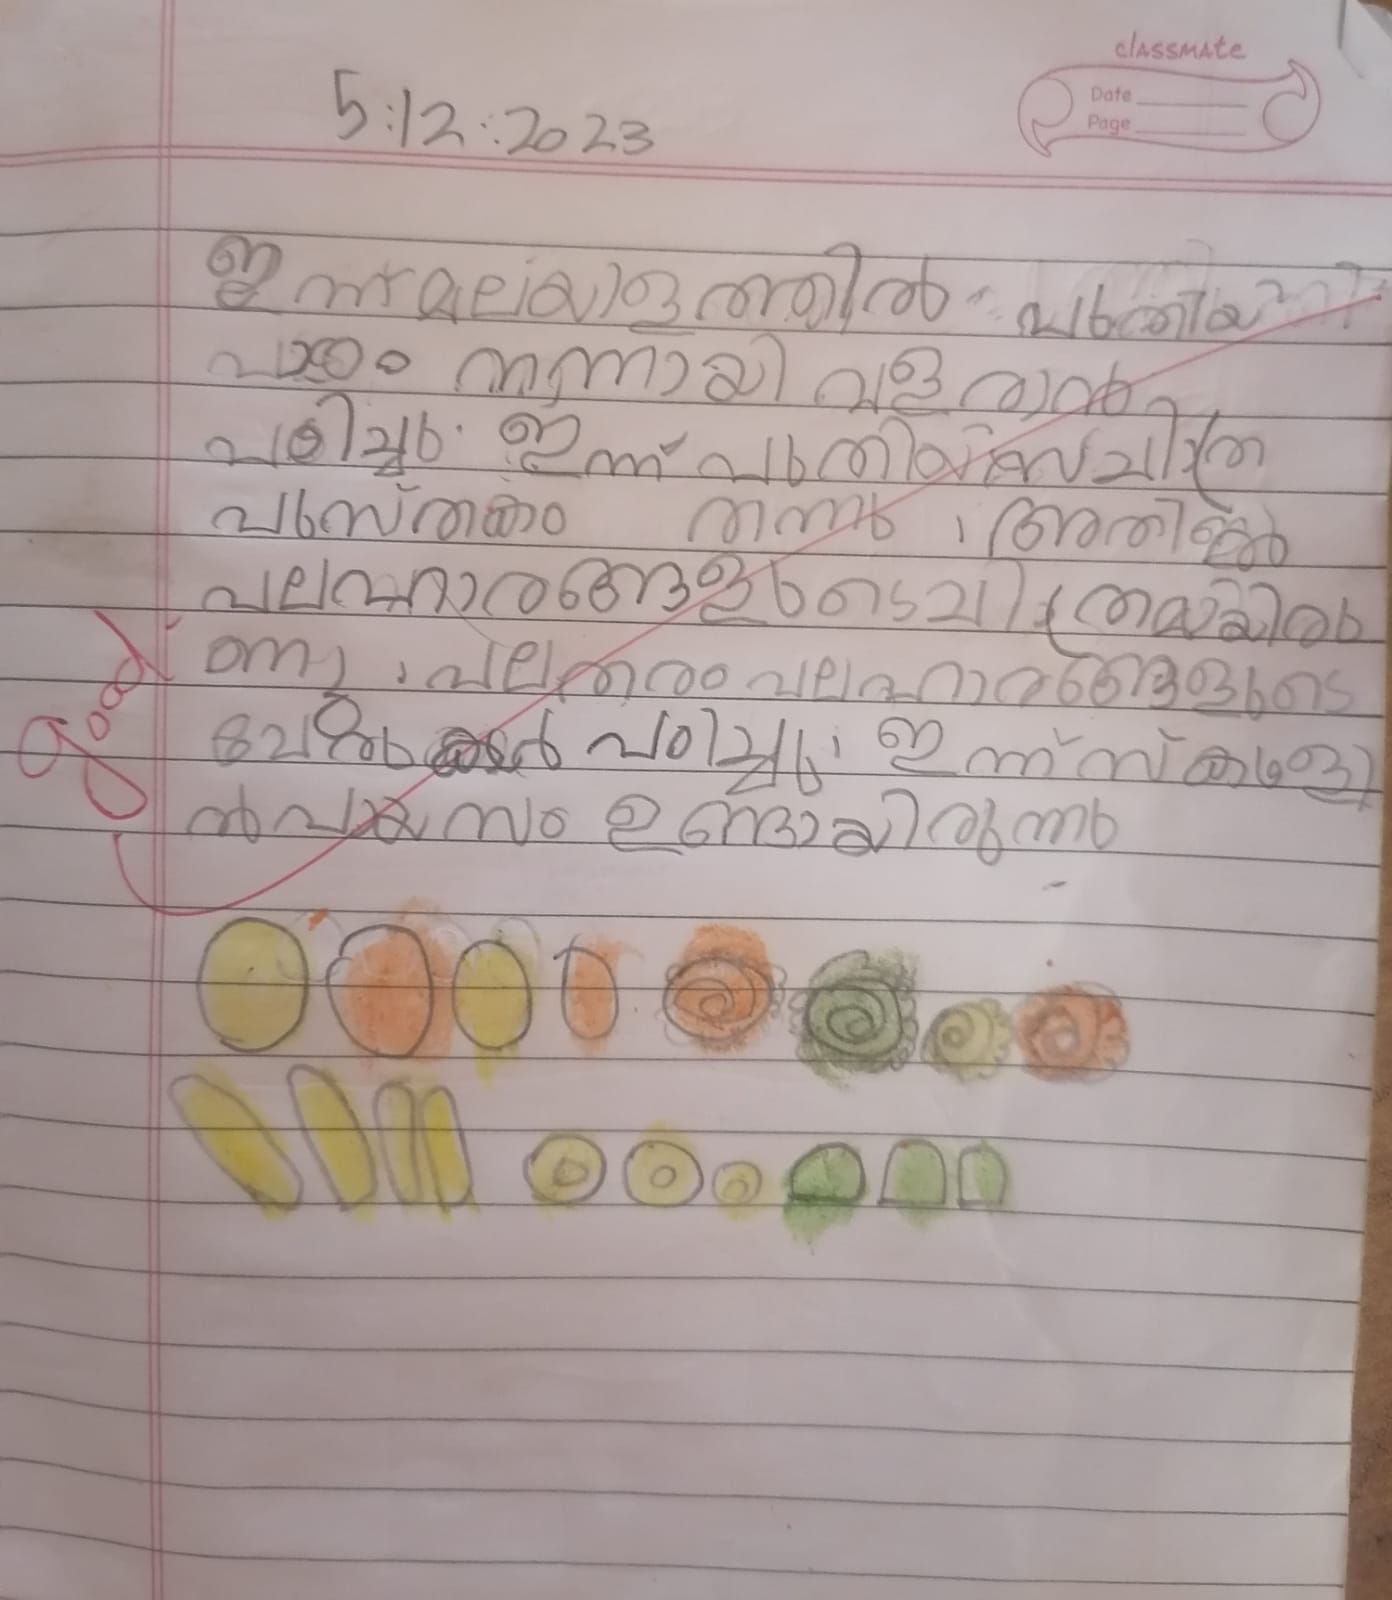 classmate
Date
Page
5:12:2023
ഇന്ന് മലയാളത്തിൽ പുതിയ
പാഠം നന്നായി വളരാൻ
പഠിച്ചു. ഇന്ന് പുതിയ സചിത്ര
പുസ്തകം തന്നു, അതിൽ
പലഹാരങ്ങളുടെ ചിത്രമായിരു
ന്നു, പലതരം പലഹാരങ്ങളുടെ
പേരുകൾ പഠിച്ചു. ഇന്ന് സ്കൂളി
ൽ പായസം ഉണ്ടായിരുന്നു
good